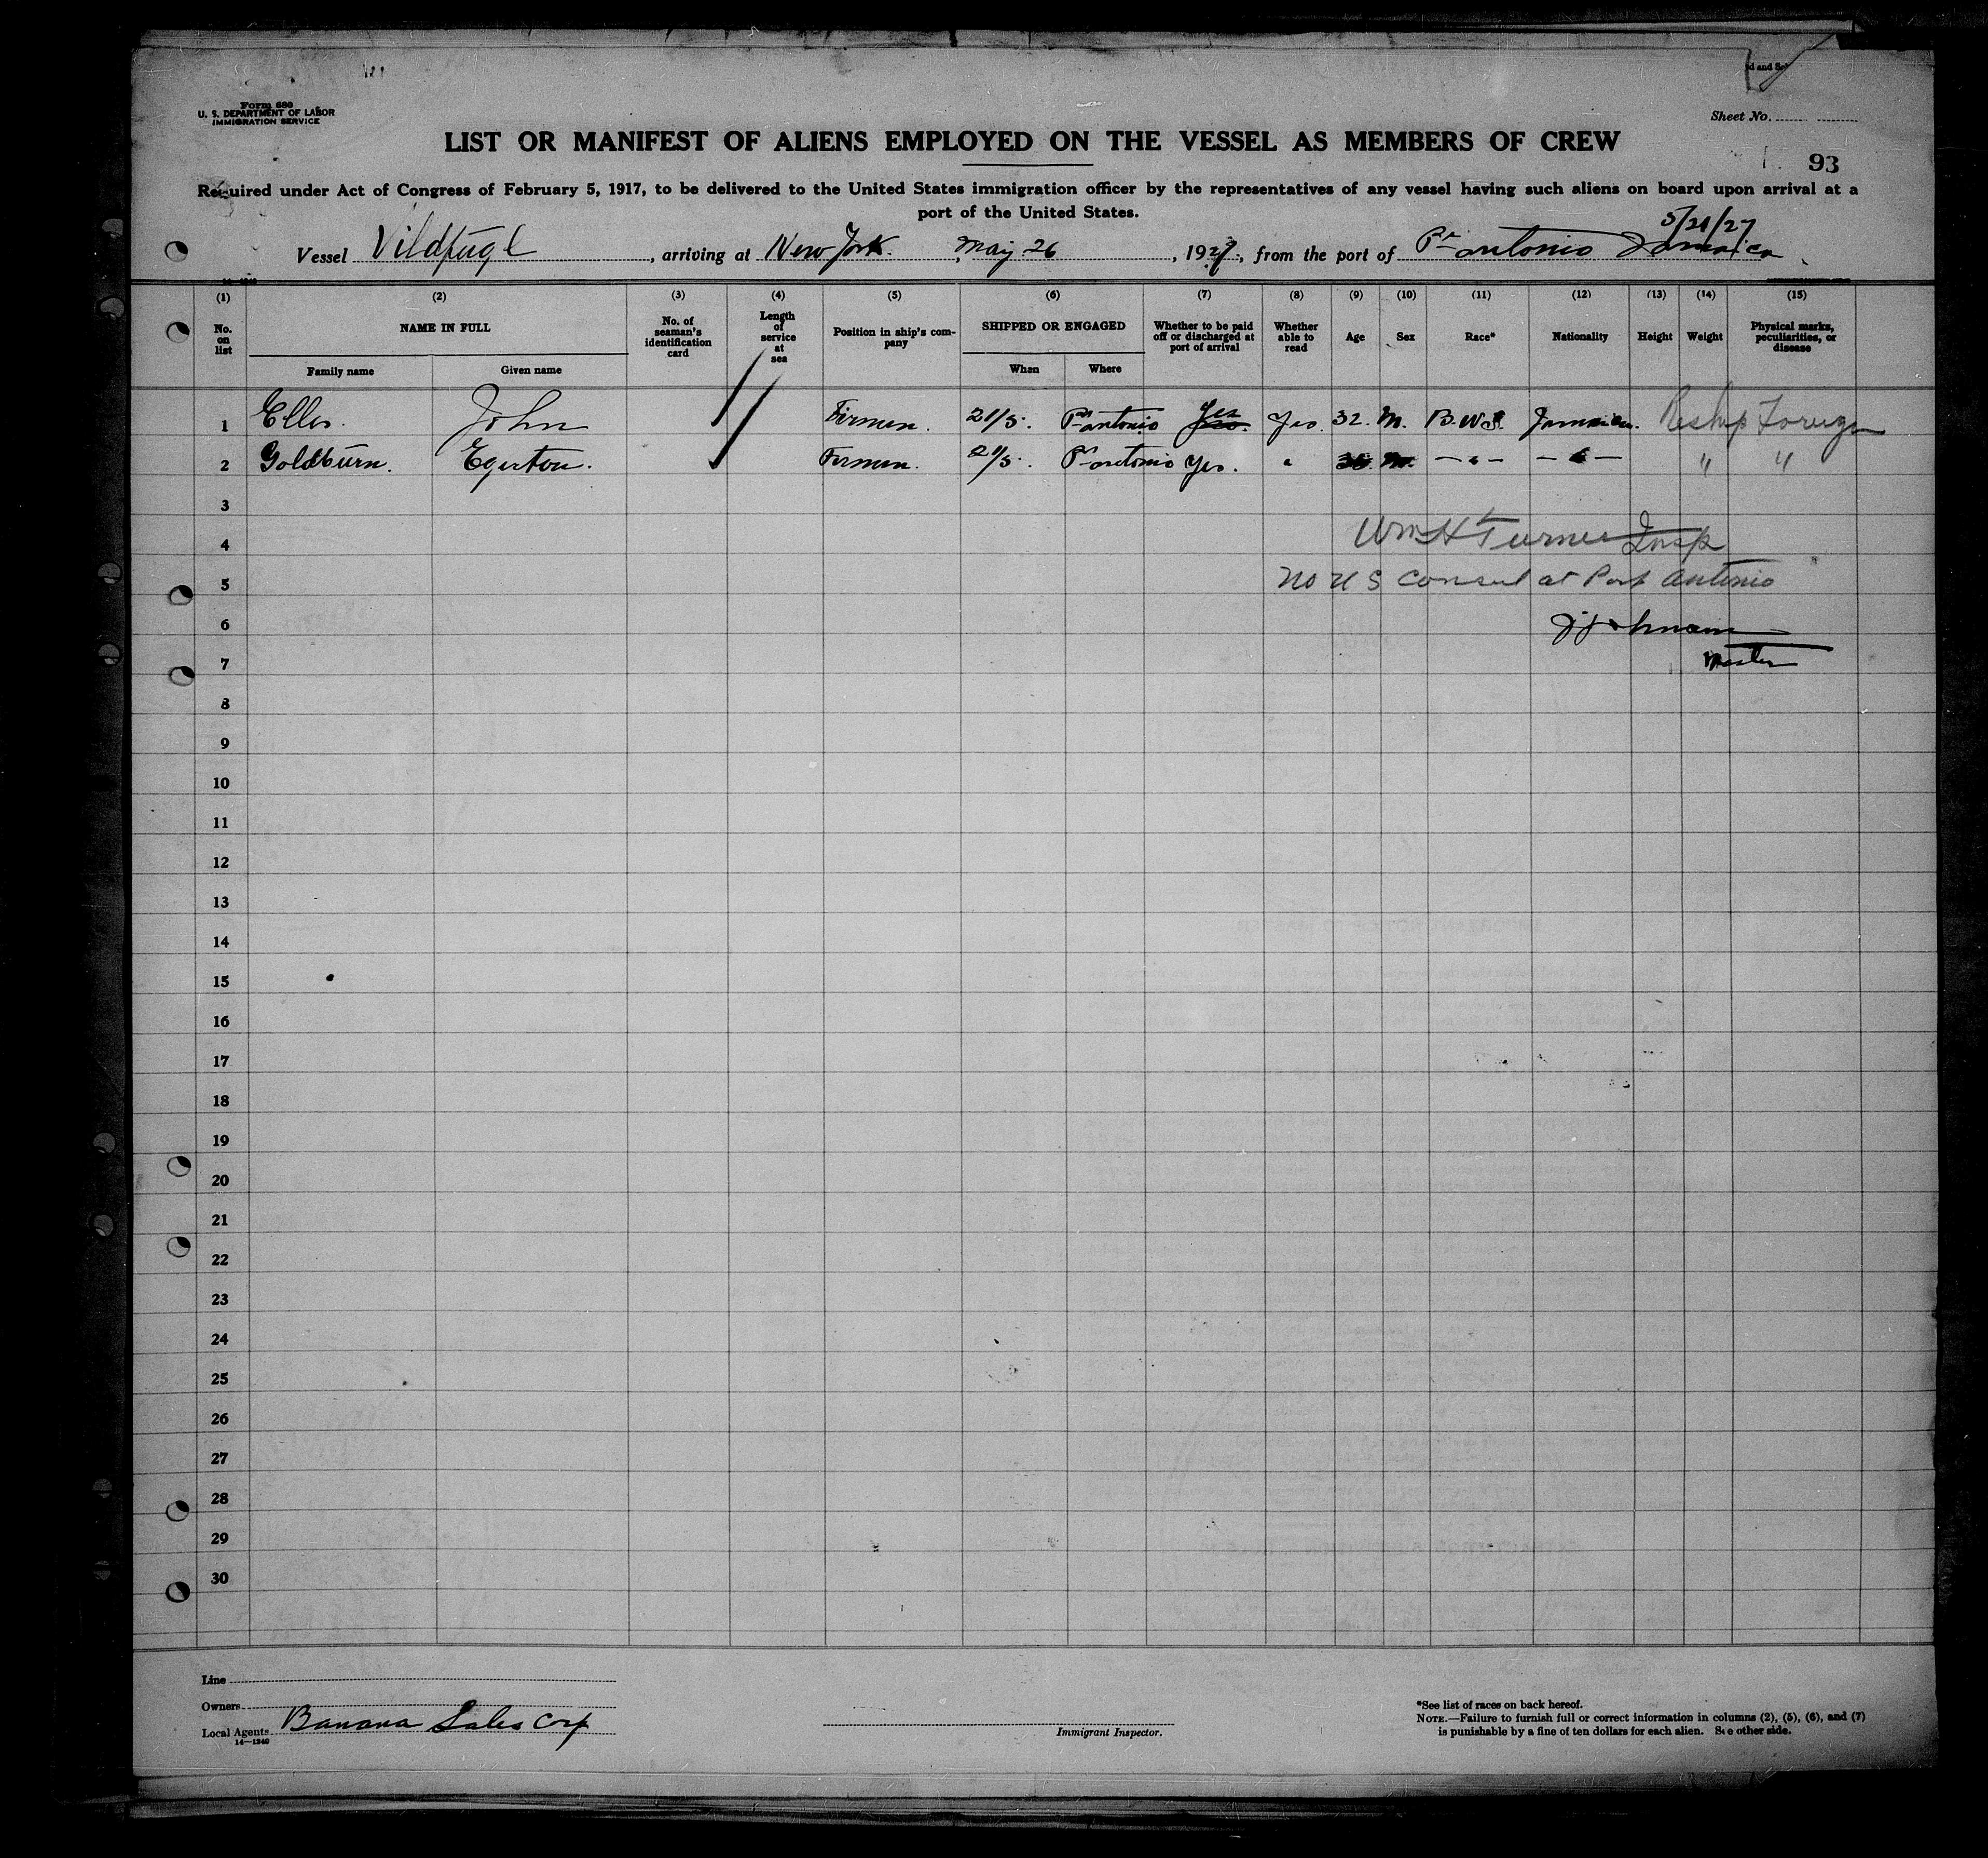 Form 680
U. S. DEPARTMENT OF LABOR
IMMIGRATION SERVICE
Sheet No.
LIST OR MANIFEST OF ALIENS EMPLOYED ON THE VESSEL AS MEMBERS OF CREW
93
Required under Act of Congress of February 5, 1917, to be delivered to the United States immigration officer by the representatives of any vessel having such aliens on board upon arrival at a
port of the United States.
5/21/27
Vessel Vildfugl, arriving at New York, May 26, 1927, from the port of Pt Antonio Jamaica
(1) (2) (3) (4) (5) (6) (7) (8) (9) (10) (11) (12) (13) (14) (15)
No. on list NAME IN FULL No. of seaman's identification card Length of service at sea Position in ship's company SHIPPED OR ENGAGED Whether to be paid off or discharged at port of arrival Whether able to read Age Sex Race* Nationality Height Weight Physical marks, peculiarities, or disease
Family name Given name When Where
1 Elles. John Firmen. 21/5. Pt Antonio Yes Yes. 32. M. B.W.I. Jamaican. Reship Foreign
2 Goldburn. Egerton. Firmen. 21/5. Pt Antonio Yes. " M. - " - - " - " "
3
4 Wm H Turner Insp
5 No U S Consul at Port Antonio
6
7 Master
8
9
10
11
12
13
14
15
16
17
18
19
20
21
22
23
24
25
26
27
28
29
30
Line
Owners
Local Agents Banana Sales Corp
14—1240
Immigrant Inspector.
*See list of races on back hereof.
NOTE.—Failure to furnish full or correct information in columns (2), (5), (6), and (7)
is punishable by a fine of ten dollars for each alien. See other side.